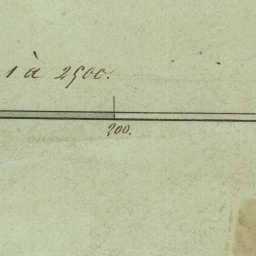 1 à 2500.
200.